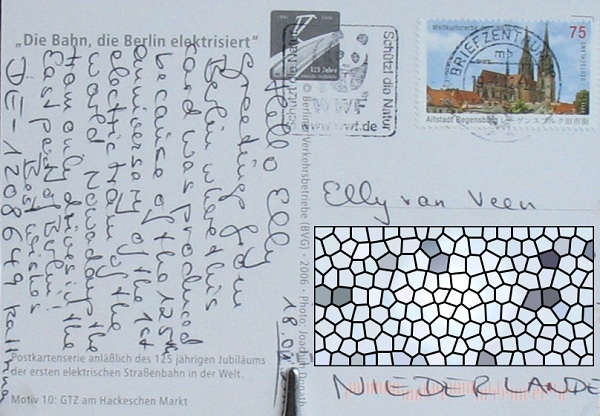 „Die Bahn, die Berlin elektrisiert“
Hello Elly
Greetings from
Berlin where this
card was produced
because of the 125th
anniversary of the 1st
electric tram of the
world. Nowadays the
tram only drives in the
East part of Berlin!
Best wishes
DE-1208649
18.01
Postkartenserie anläßlich des 125 jährigen Jubiläums
der ersten elektrischen Straßenbahn in der Welt.
Motiv 10: GTZ am Hackeschen Markt
© Berliner Verkehrsbetriebe (BVG) · 2006 · Photo: Joachim Donath
125 Jahre
Schützt die Natur
Schützt die Natur
WWF
www.wwf.de
BRIEFZENTRUM
mb
Weltkulturerbe
75
Altstadt Regensburg
Elly van Veen
NIEDERLANDE